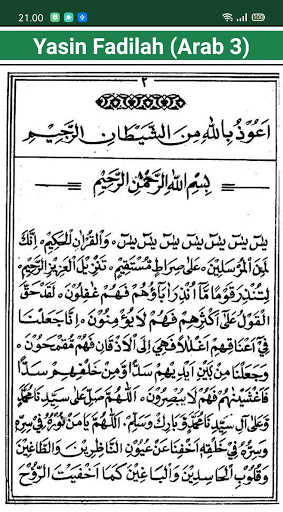 21.00
Yasin Fadilah (Arab 3)
٢
اَعُوْذُ بِاللهِ مِنَ الشَّيْطَانِ الرَّجِيْمِ
بِسْمِ اللهِ الرَّحْمٰنِ الرَّحِيْمِ
يٰسٓ يٰسٓ يٰسٓ يٰسٓ يٰسٓ يٰسٓ يٰسٓ، وَالْقُرْاٰنِ الْحَكِيْمِ، اِنَّكَ
لَمِنَ الْمُرْسَلِيْنَ، عَلٰى صِرَاطٍ مُسْتَقِيْمٍ، تَنْزِيْلَ الْعَزِيْزِ الرَّحِيْمِ
لِتُنْذِرَ قَوْمًا مَّا اُنْذِرَ اٰبَاؤُهُمْ فَهُمْ غٰفِلُوْنَ، لَقَدْ حَقَّ
الْقَوْلُ عَلٰى اَكْثَرِهِمْ فَهُمْ لَا يُؤْمِنُوْنَ، اِنَّا جَعَلْنَا
فِيْ اَعْنَاقِهِمْ اَغْلٰلًا فَهِيَ اِلَى الْاَذْقَانِ فَهُمْ مُقْمَحُوْنَ،
وَجَعَلْنَا مِنْ بَيْنِ اَيْدِيْهِمْ سَدًّا وَمِنْ خَلْفِهِمْ سَدًّا
فَاَغْشَيْنٰهُمْ فَهُمْ لَا يُبْصِرُوْنَ، اَللّٰهُمَّ صَلِّ عَلٰى سَيِّدِنَا مُحَمَّدٍ
وَعَلٰى اٰلِ سَيِّدِنَا مُحَمَّدٍ وَبَارِكْ وَسَلِّمْ، اَللّٰهُمَّ يَا مَنْ نُوْرُهُ فِيْ سِرِّهِ
وَسِرُّهُ فِيْ خَلْقِهِ اَخْفِنَا عَنْ عُيُوْنِ النَّاظِرِيْنَ، وَالطَّاغِيْنَ
وَقُلُوْبِ الْحَاسِدِيْنَ وَالْبَاغِيْنَ كَمَا اَخْفَيْتَ الرُّوْحَ